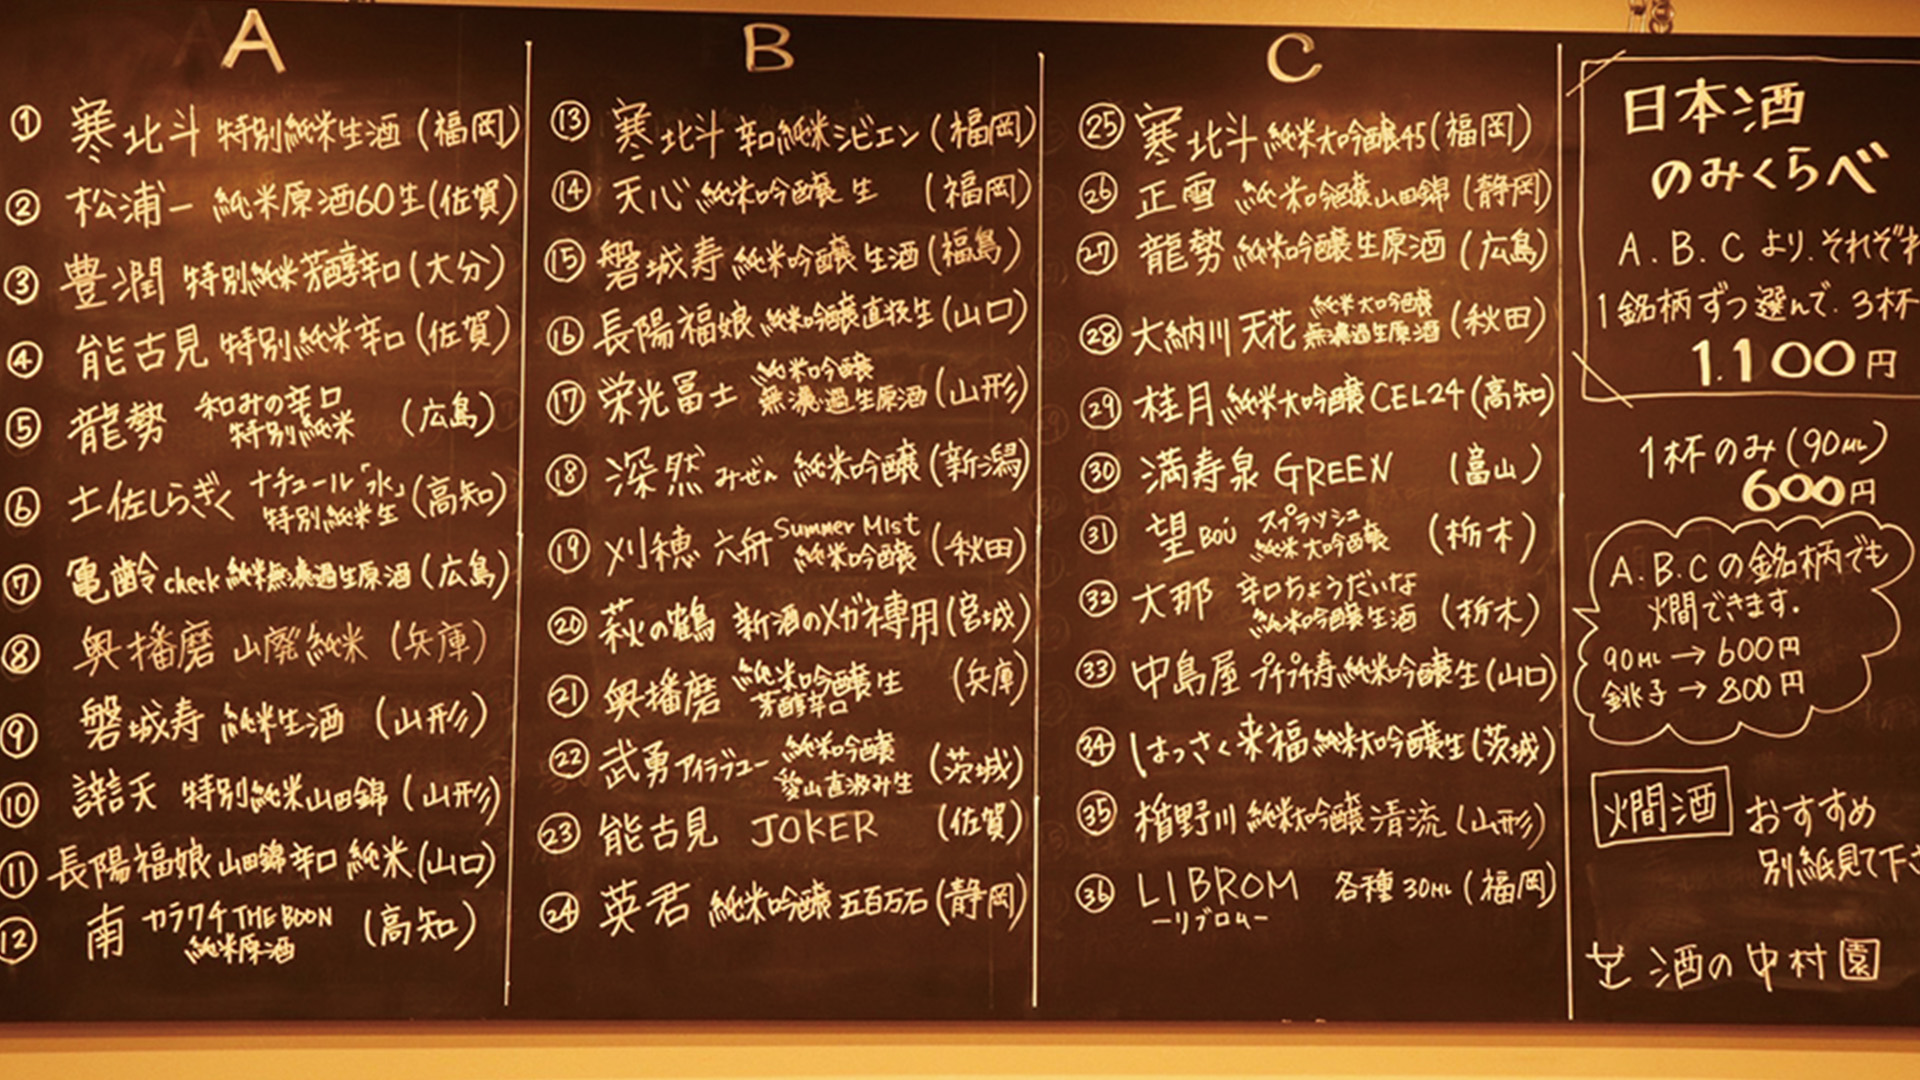 A
① 寒北斗 特別純米生酒 (福岡)
② 松浦一 純米原酒60生 (佐賀)
③ 豊潤 特別純米芳醇辛口 (大分)
④ 能古見 特別純米辛口 (佐賀)
⑤ 龍勢 和みの辛口 (広島)
特別純米
⑥ 土佐しらぎく ナチュール「氷」 (高知)
特別純米生
⑦ 亀齢 check 純米無濾過生原酒 (広島)
⑧ 奥播磨 山廃純米 (兵庫)
⑨ 磐城寿 純米生酒 (山形)
⑩ 天 特別純米山田錦 (山形)
⑪ 長陽福娘 山田錦辛口 純米 (山口)
⑫ 南 カラクチ THE BOON (高知)
純米原酒
B
⑬ 寒北斗 辛口純米シビエン (福岡)
⑭ 天心 純米吟醸 生 (福岡)
⑮ 磐城寿 純米吟醸 生酒 (福島)
⑯ 長陽福娘 純米吟醸直汲生 (山口)
⑰ 栄光冨士 純米吟醸 (山形)
無濾過生原酒
⑱ 深然 みぜん 純米吟醸 (新潟)
⑲ 刈穂 六舟 Summer Mist (秋田)
純米吟醸
⑳ 萩の鶴 新酒のメガネ専用 (宮城)
㉑ 奥播磨 純米吟醸生 (兵庫)
芳醇辛口
㉒ 武勇 アイラブユー 純米吟醸 (茨城)
愛山直汲み生
㉓ 能古見 JOKER (佐賀)
㉔ 英君 純米吟醸 五百万石 (静岡)
C
㉕ 寒北斗 純米大吟醸45 (福岡)
㉖ 正雪 純米吟醸山田錦 (静岡)
㉗ 龍勢 純米吟醸生原酒 (広島)
㉘ 大納川 天花 純米大吟醸 (秋田)
無濾過生原酒
㉙ 桂月 純米大吟醸 CEL24 (高知)
㉚ 満寿泉 GREEN (富山)
㉛ 望 Boú スプラッシュ (栃木)
純米大吟醸
㉜ 大那 辛口ちょうだいな (栃木)
純米吟醸生酒
㉝ 中島屋 プチプチ寿 純米吟醸生 (山口)
㉞ はっさく来福 純米大吟醸生 (茨城)
㉟ 楯野川 純米大吟醸 清流 (山形)
㊱ LIBROM 各種 30ML (福岡)
ーリブロムー
日本酒
のみくらべ
A.B.C より.それぞれ
1銘柄ずつ選んで.3杯
1.100円
1杯のみ(90ML)
600円
A.B.Cの銘柄でも
燗できます.
90ML→600円
銚子→800円
燗酒 おすすめ
別紙見て下さ
酒の中村園